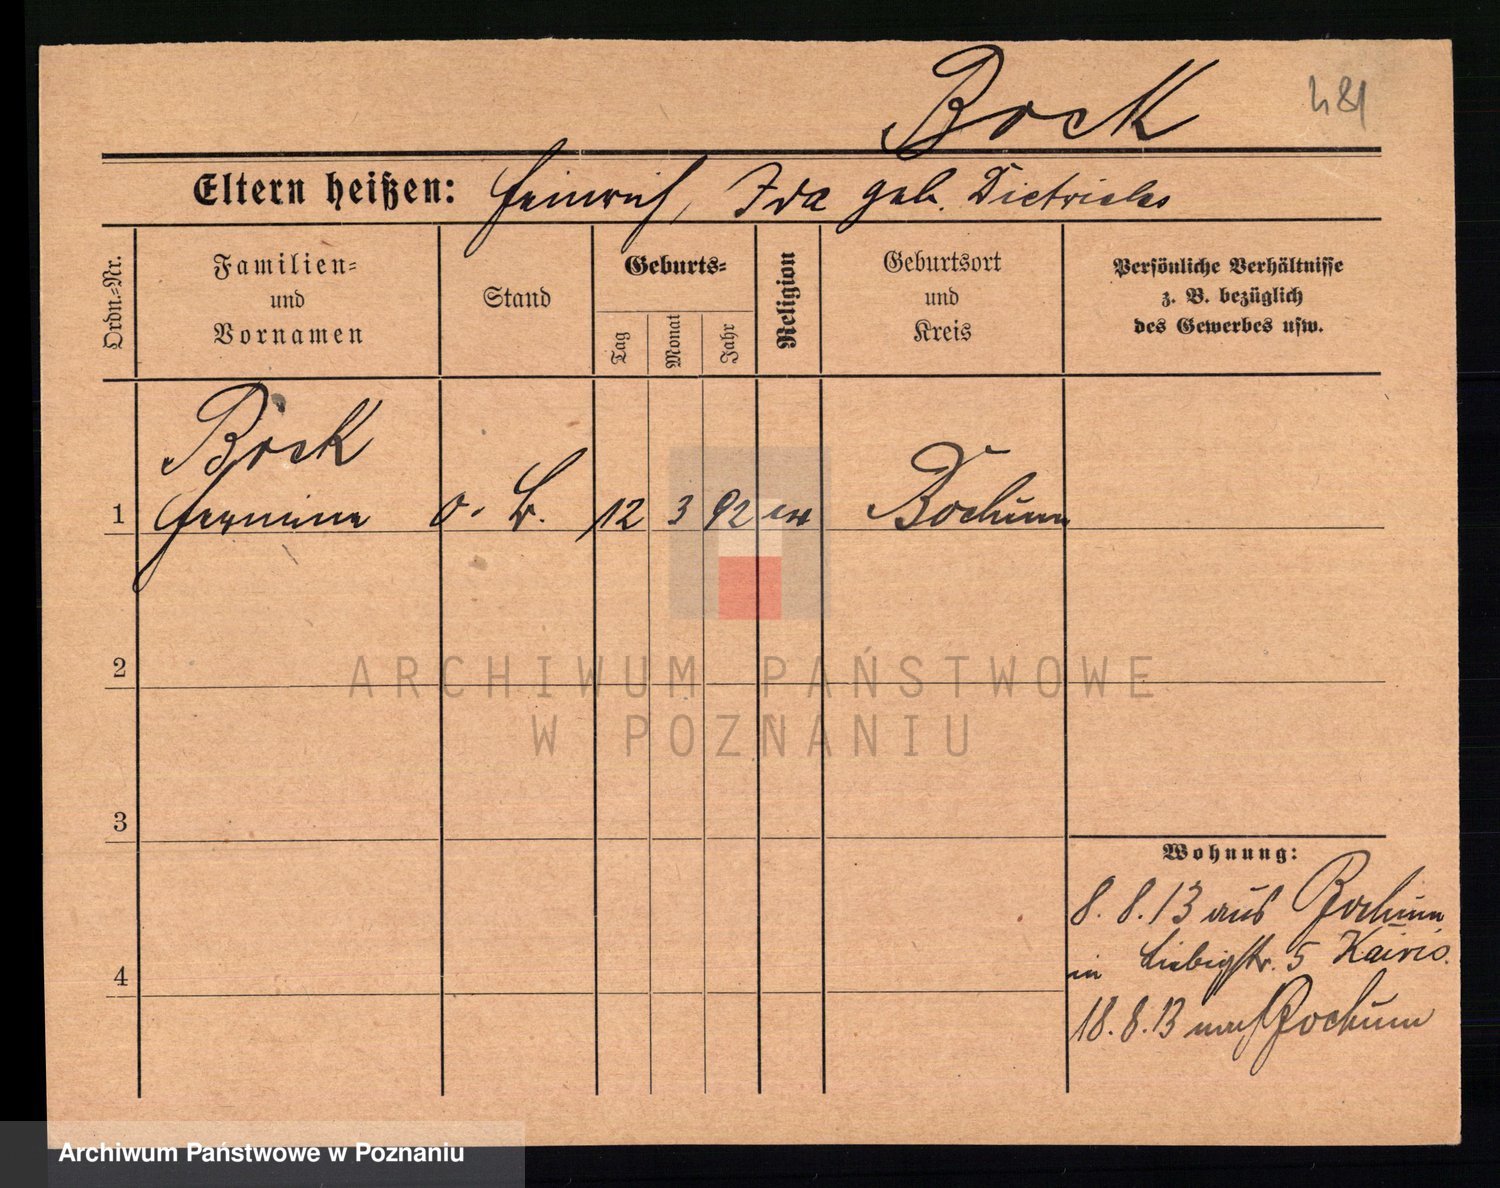 Bock 481
Eltern heißen: Heinrich, Ida geb. Dietrichs
Ordn.-Nr.
Familien-
und
Vornamen
Stand
Geburts-
Tag
Monat
Jahr
Religion
Geburtsort
und
Kreis
Persönliche Verhältnisse
z. B. bezüglich
des Gewerbes usw.
Bock
1 Hermine o. B. 12 3 92 ev Bochum
2
3
4
Wohnung:
8. 8. 13 aus Bochum
in Liebigstr. 5
18. 8. 13 nach Bochum
ARCHIWUM PAŃSTWOWE
W POZNANIU
Archiwum Państwowe w Poznaniu